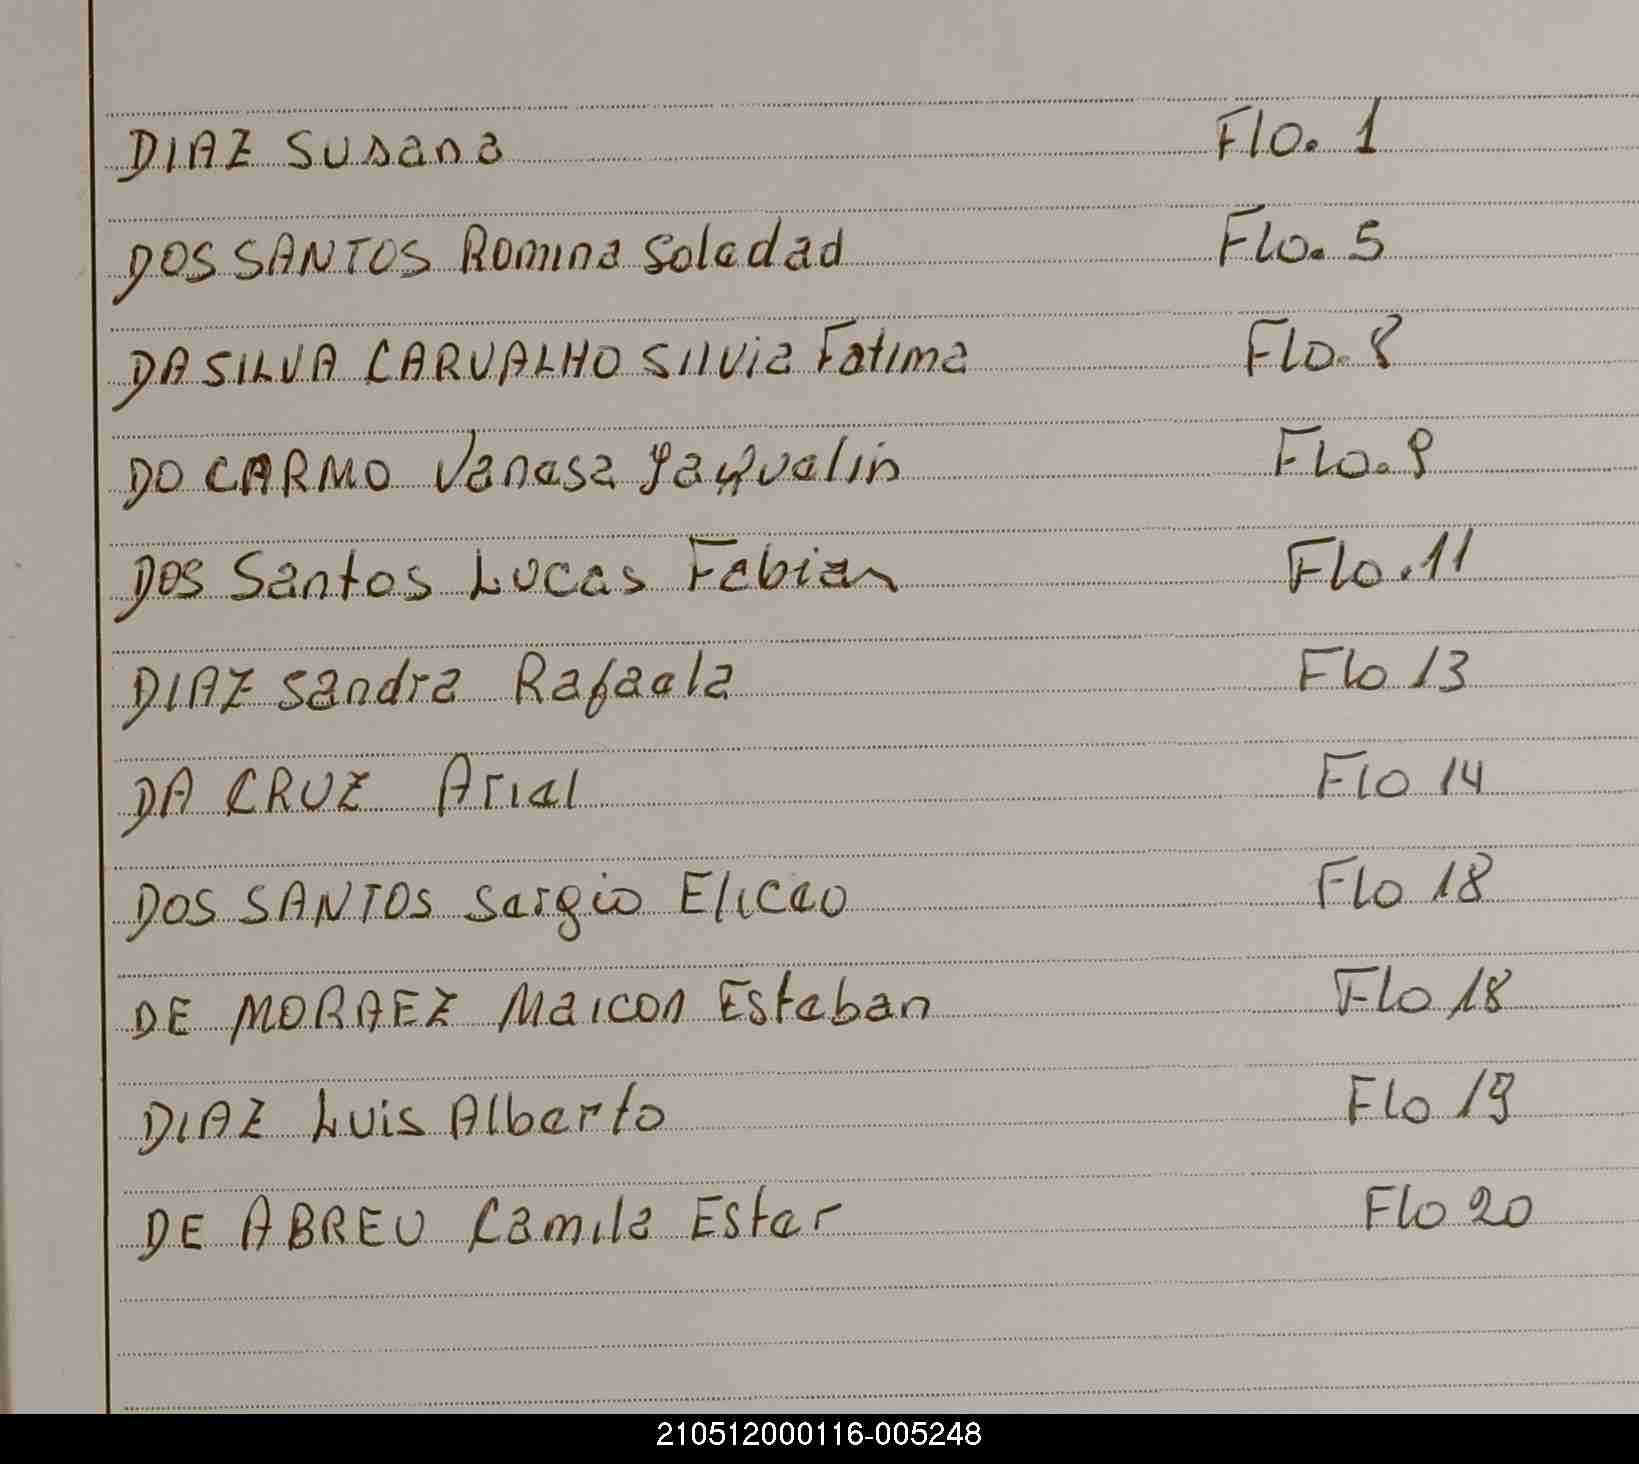 DIAZ Susana Flo. 1
DOS SANTOS Romina Soledad Flo. 5
DA SILVA CARVALHO Silvia Fatima Flo. 8
DO CARMO Vanesa Yaquelin Flo. 9
DOS Santos Lucas Fabian Flo. 11
DIAZ Sandra Rafaela Flo 13
DA CRUZ Ariel Flo 14
DOS SANTOS Sergio Eliceo Flo 18
DE MORAEZ Maicon Esteban Flo 18
DIAZ Luis Alberto Flo 19
DE ABREU Camila Ester Flo 20
210512000116-005248